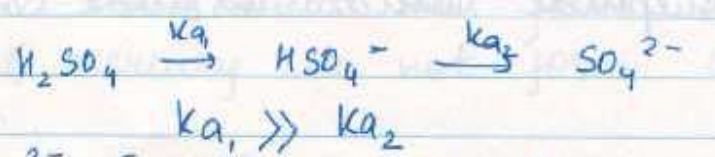 H₂SO₄ —Ka₁→ HSO₄⁻ —Ka₂→ SO₄²⁻
Ka₁ >> Ka₂